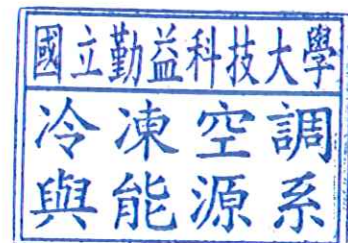 國立勤益科技大學
冷凍空調
與能源系